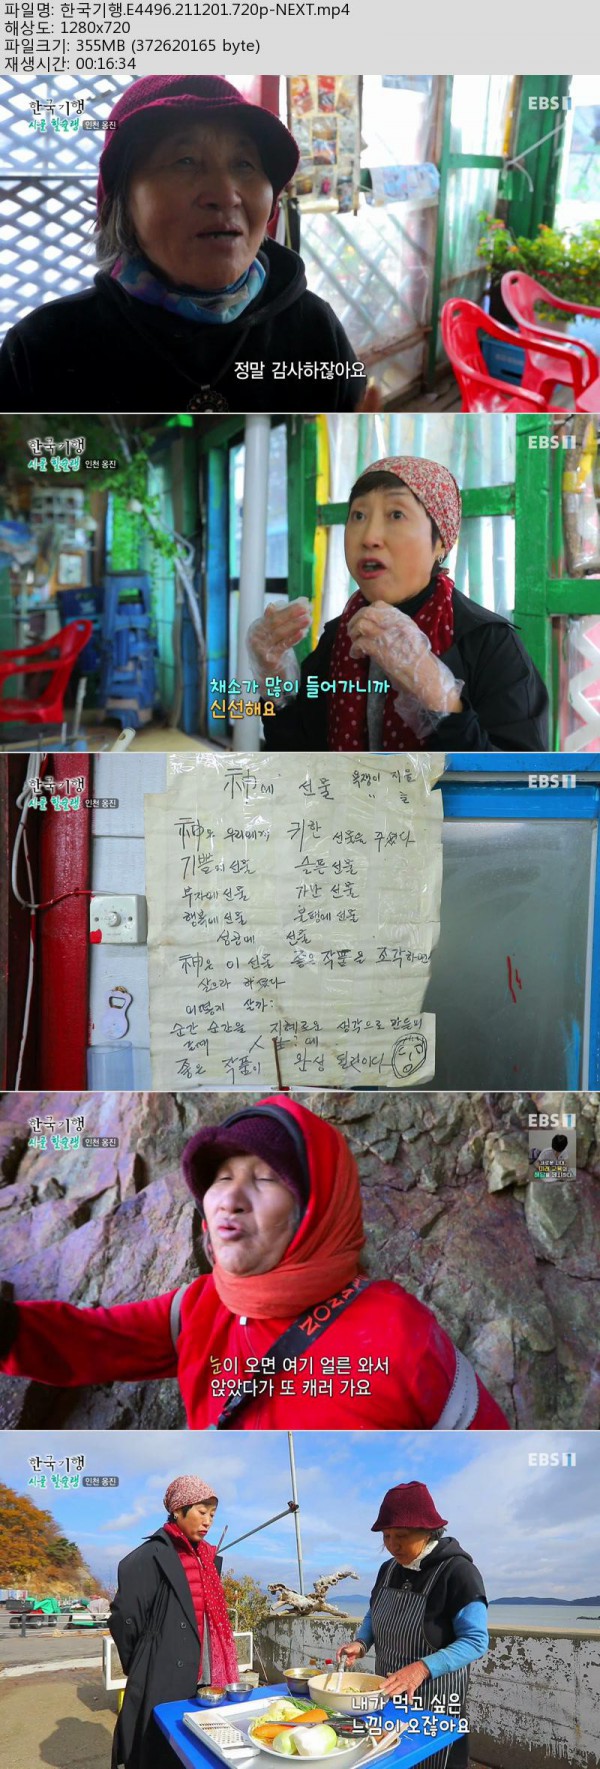 파일명: 한국기행.E4496.211201.720p-NEXT.mp4
해상도: 1280x720
파일크기: 355MB (372620165 byte)
재생시간: 00:16:34
한국기행
시골 힐술랭 인천 옹진
EBS1
정말 감사하잖아요
한국기행
시골 힐술랭 인천 옹진
EBS1
채소가 많이 들어가니까
신선해요
한국기행
시골 힐술랭 인천 옹진
EBS1
神에 선물
神은 우리에게 귀한 선물을 주셨다
기쁨의 선물 슬픈 선물
부자에 선물 가난 선물
행복에 선물 불행에 선물
성공에 선물
神은 이 선물 좋은 작품을 조각하면
살으라 하셨다
어떻게 살까?
순간 순간을 지혜로운 생각으로 만들의
좋은 작품이 완성 될것이다
한국기행
시골 힐술랭 인천 옹진
EBS1
눈이 오면 여기 얼른 와서
앉았다가 또 캐러 가요
한국기행
시골 힐술랭 인천 옹진
EBS1
내가 먹고 싶은
느낌이 오잖아요